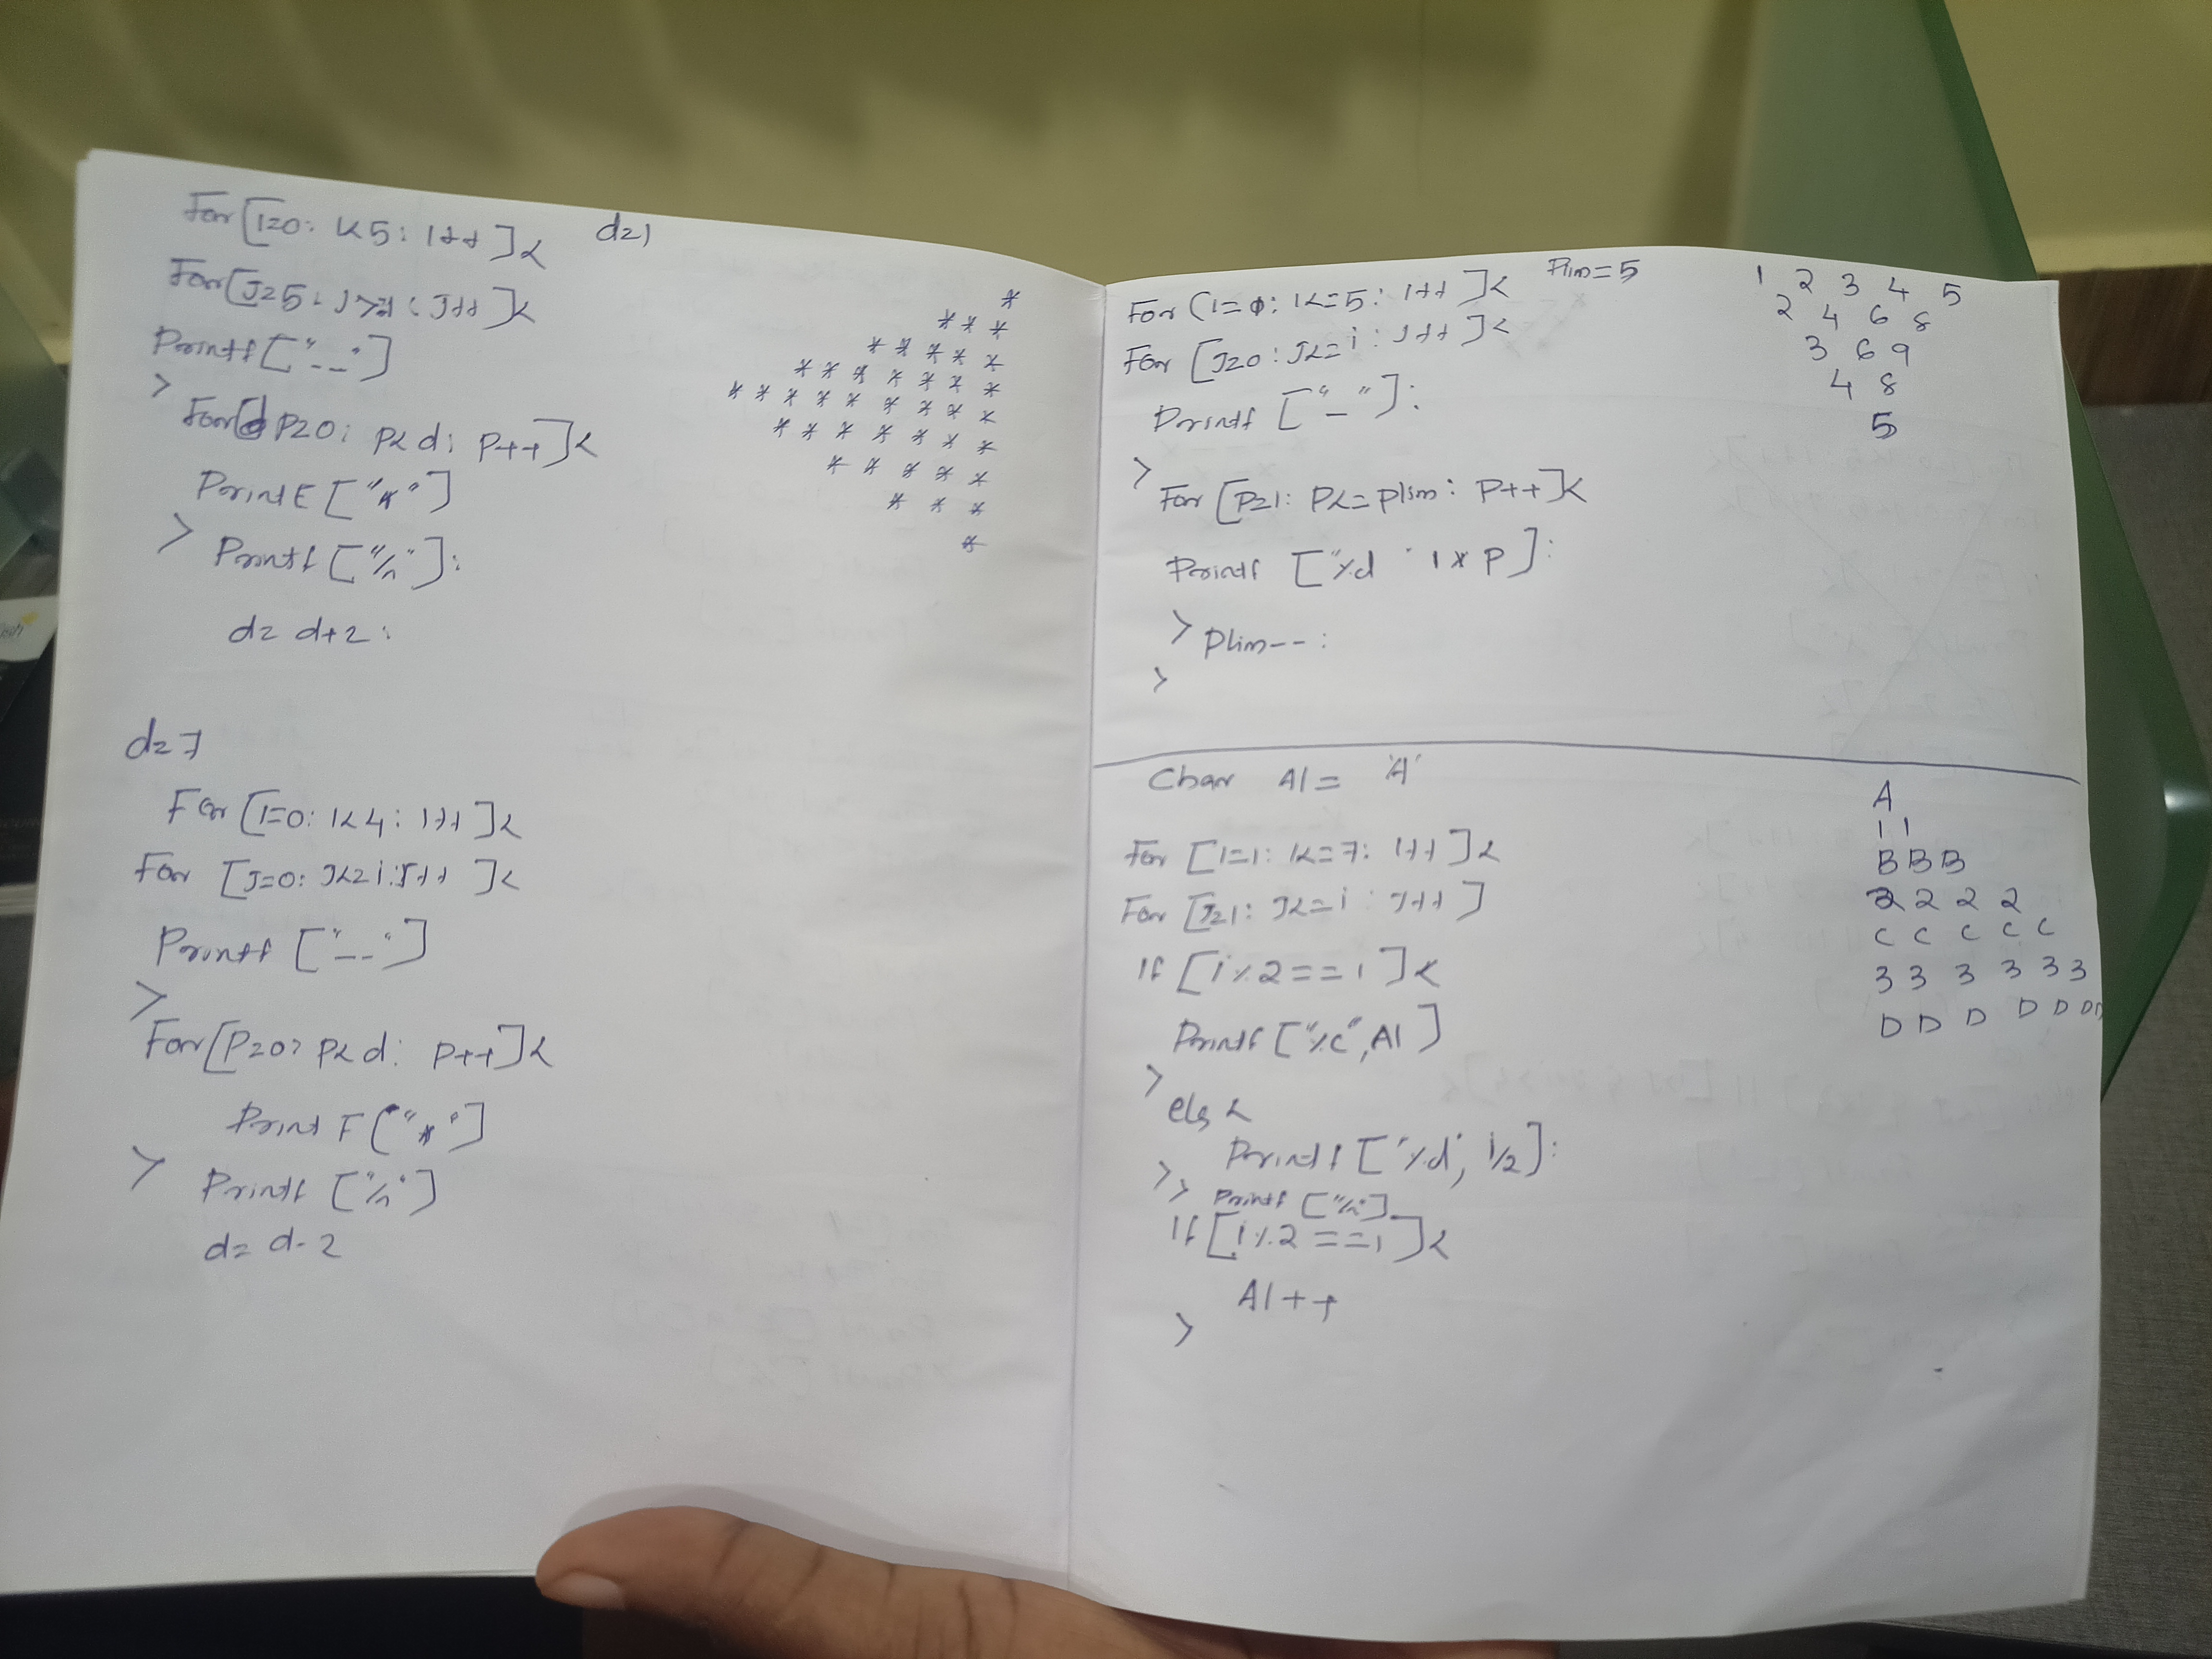 For [I=0: I<5: I++]<      d=1
For [J=5: J>i: J++]<
Printf ["__"]
>
For [P=0: P<d: P++]<
Printf ["*"]
>
Printf ["\n"]:
d= d+2:
*
* * *
* * * * *
* * * * * * *
* * * * * * * * *
* * * * * * *
* * * * *
* * *
*
d=7
For [I=0: I<4: I++]<
For [J=0: J<=i: J++]<
Printf ["__"]
>
For [P=0: P<d: P++]<
Print F ["*"]
>
Printf ["\n"]
d= d-2
For (I=0: I<=5: I++]<   Plim=5
For [J=0: J<=i: J++]<
Printf ["_"]:
>
For [P=1: P<=plim: P++]<
Printf ["%d" I*P]:
> Plim--:
>
1 2 3 4 5
2 4 6 8
3 6 9
4 8
5
Char Al= 'A'
For [I=1: I<=7: I++]<
For [J=1: J<=i: J++]
If [i%2==1]<
Printf ["%c", Al]
>
els <
Printf ["%d", i/2]:
>> Printf ["\n"]
If [i%2==1]<
Al++
>
A
1 1
B B B
2 2 2 2
C C C C C
3 3 3 3 3 3
D D D D D D D